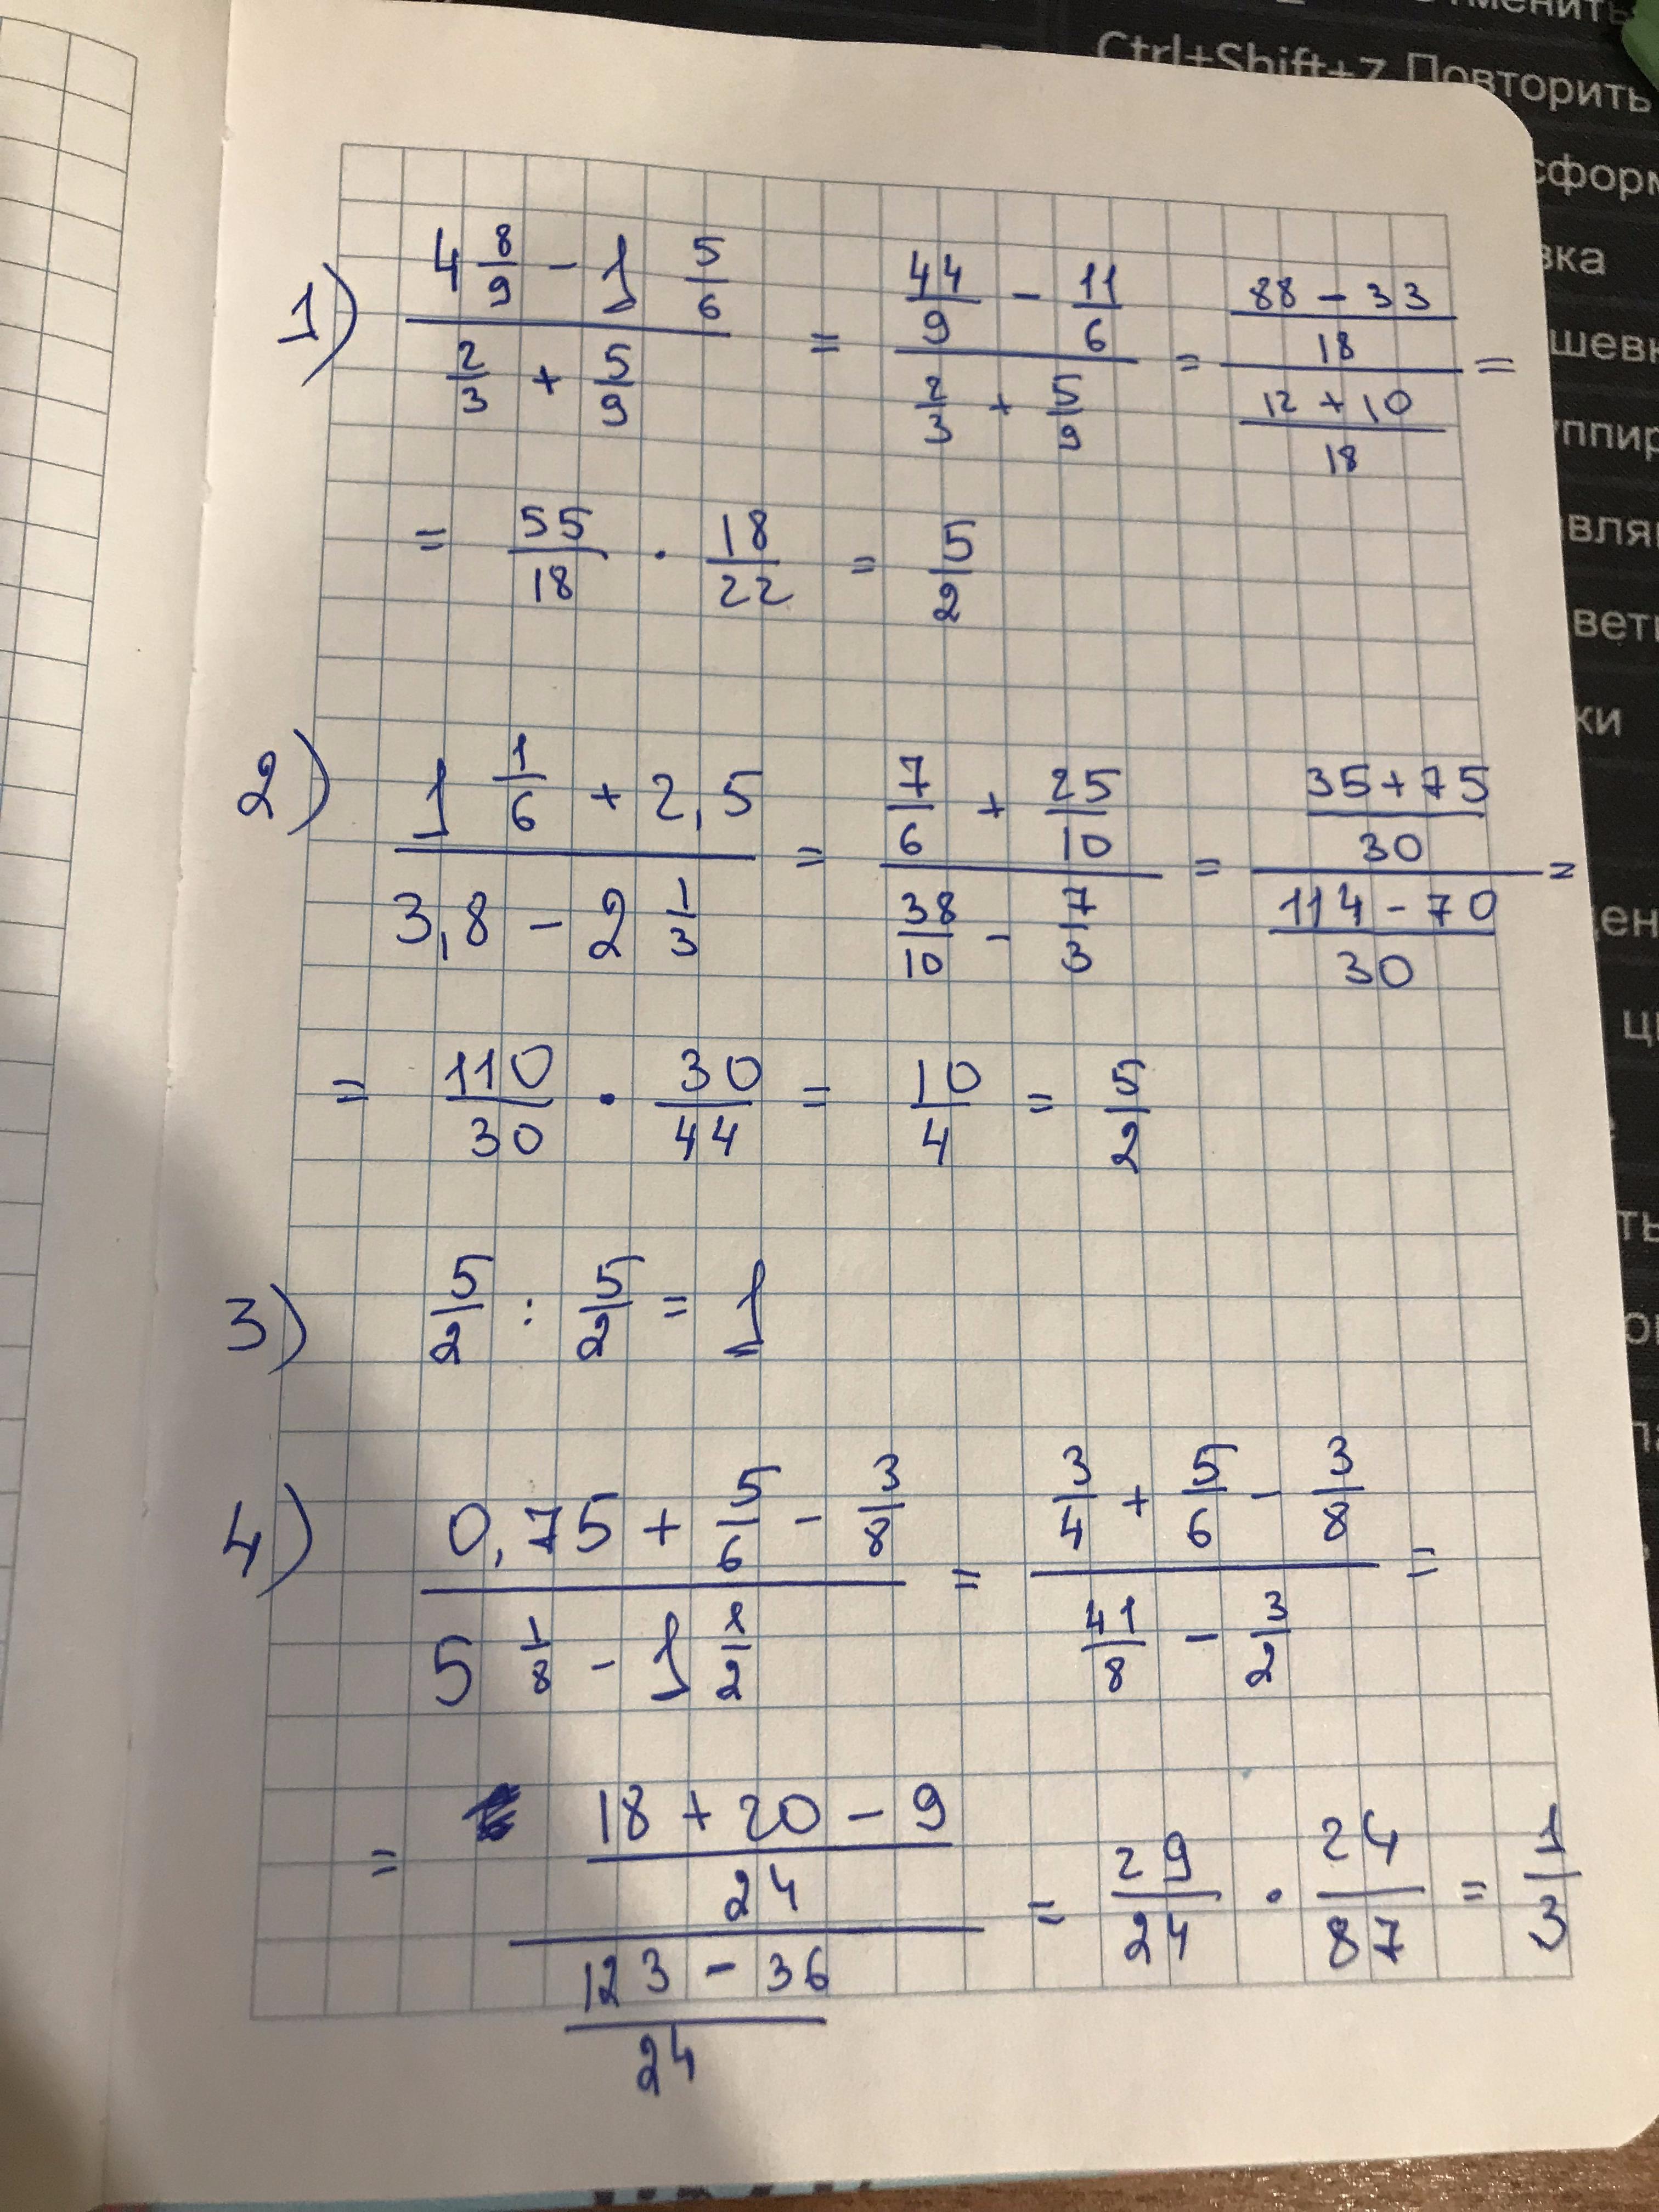 Ctrl+Shift+Z Повторить
1) (4 8/9 - 1 5/6)/(2/3 + 5/9) = (44/9 - 11/6)/(2/3 + 5/9) = ((88 - 33)/18)/((12 + 10)/18) =
= 55/18 · 18/22 = 5/2
2) (1 1/6 + 2,5)/(3,8 - 2 1/3) = (7/6 + 25/10)/(38/10 - 7/3) = ((35 + 75)/30)/((114 - 70)/30) =
= 110/30 · 30/44 = 10/4 = 5/2
3) 5/2 : 5/2 = 1
4) (0,75 + 5/6 - 3/8)/(5 1/8 - 1 1/2) = (3/4 + 5/6 - 3/8)/(41/8 - 3/2) =
= ((18 + 20 - 9)/24)/((123 - 36)/24) = 29/24 · 24/87 = 1/3